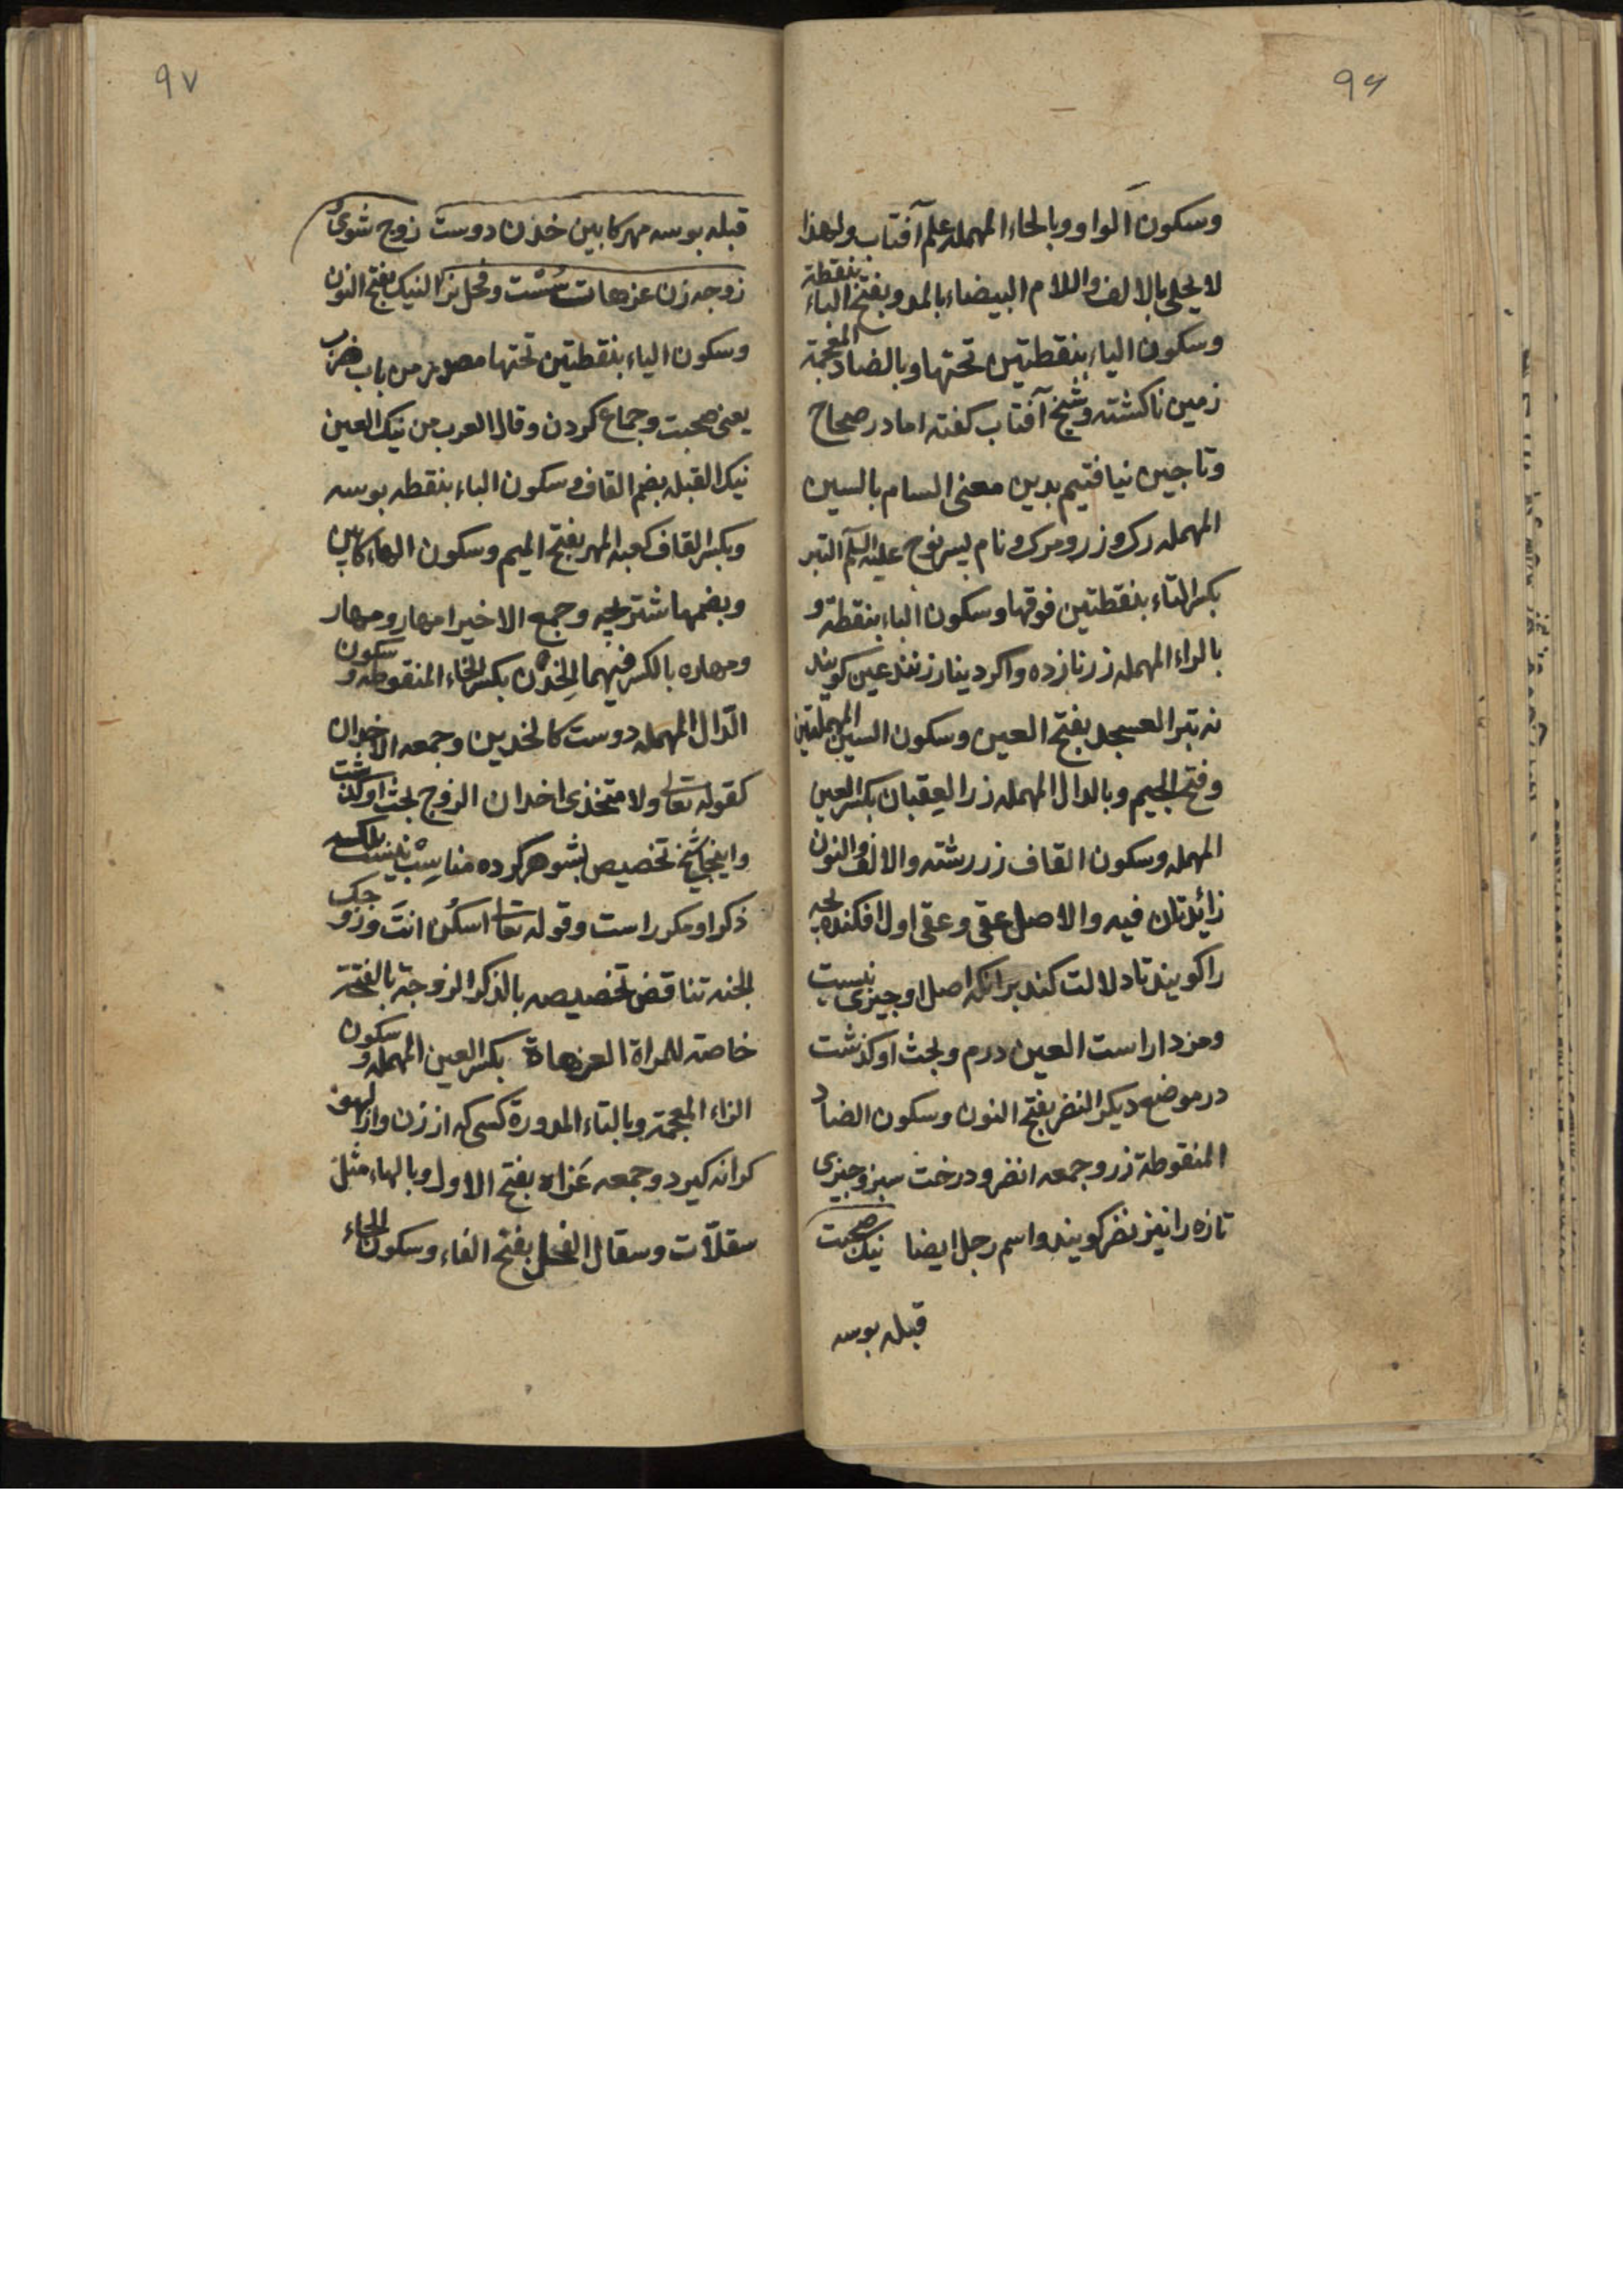 ۹۶
وسكون الواو وبالحاء المهمله علم آفتاب ولهذا
لا يحلى بالالف واللام البيضاء بالمد وبفتح الباء بنقطة
وسكون الياء بنقطتين تحتها وبالضاد المعجمة
زمين ناكشته وشيخ آفتاب كفته اما در صحاح
وتاجين نيافتيم بدين معنى السام بالسين
المهمله رك وزر ومرك ونام پسر نوح عليه السلم التبر
بكسر التاء بنقطتين فوقها وسكون الباء بنقطة و
بالراء المهمله زر نازده واكر دينار زنند عين كويند
نه تبر العسجد بفتح العين وسكون السين المهملتين
وفتح الجيم وبالدال المهمله زر العقيان بكسر العين
المهمله وسكون القاف زر رشته والالف والنون
زائدتان فيه والاصل عقى وعقى اول افكنده بچه
را كويند تا دلالت كند برانكه اصل او چيزى نيست
ومزدار است العين درم وبحث او كذشت
در موضع ديكر النضر بفتح النون وسكون الضاد
المنقوطة زر وجمعه انضر ودرخت سبز وچيزى
تازه را نيز نضر كويند واسم رجل ايضا نيك صحبت
قبله بوسه
۹۷
قبله بوسه مهر كابين خدن دوست زوج شوى
زوجه زن عزهات سست وفحل نر النيك بفتح النون
وسكون الياء بنقطتين تحتها مصدر من باب ضرب
يعنى صحبت وجماع كردن وقال العرب من نيك العين
نيك القبله بضم القاف وسكون الباء بنقطه بوسه
وبكسر القاف كعبه المهر بفتح الميم وسكون الهاء كابين
وبضمها شتر بچه وجمع الاخير امهار ومهار
ومهاره بالكسر فيهما الخدن بكسر الخاء المنقوطه وسكون
الدال المهمله دوست كالخدين وجمعه الاخدان
كقوله تعالى ولا متخذى اخدان الزوج بحث او كذشت
واينجا شيخ تخصيص بشوهر كرده مناسب نيست بلكه
ذكر او مكرر است وقوله تعالى اسكن انت وزوجك
الجنه تناقض تخصيصه بالذكر الزوجة بالفتحة
خاصته للمراة العزهاة بكسر العين المهمله وسكون
الزاء المعجمة وبالتاء المدورة كسى كه از زن واز لهو
كرانه كيرد وجمعه عزاه بفتح الاول وبالهاء مثل
سقلات وسقال الفحل بفتح الفاء وسكون الحاء